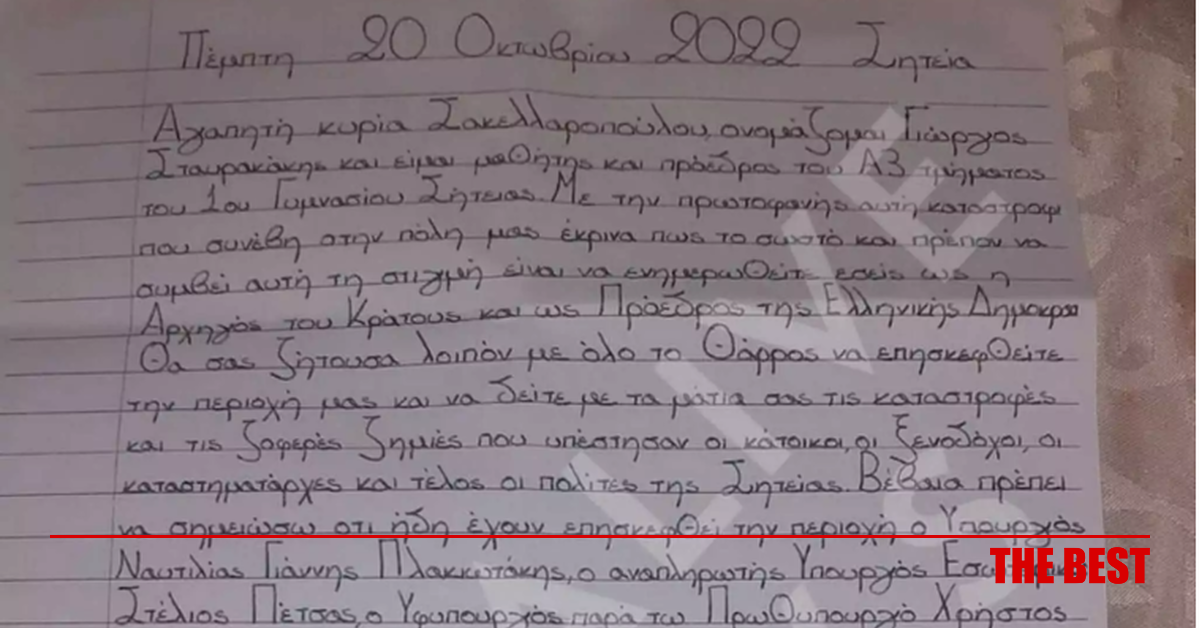 Πέμπτη 20 Οκτωβρίου 2022 Σητεία
Αγαπητή κυρία Σακελλαροπούλου, ονομάζομαι Γιώργος
Σταυρακάκης και είμαι μαθήτης και πρόεδρος του Α3 τμήματος
του 1ου Γυμνασίου Σήτειας. Με την πρωτοφανής αυτή καταστροφή
που συνέβη στην πόλη μας έκρινα πως το σωστό και πρέπον να
συμβεί αυτή τη στιγμή είναι να ενημερωθείτε εσείς ως η
Αρχηγός του Κράτους και ως Πρόεδρος της Ελληνικής Δημοκρα
Θα σας ζήτουσα λοιπόν με όλο το Θάρρος να επησκεφθείτε
την περιοχή μας και να δείτε με τα μάτια σας τις καταστροφές
και τις ζοφερές ζημιές που υπέστησαν οι κάτοικοι, οι ξενοδόχοι, οι
καταστηματάρχες και τέλος οι πολίτες της Σητείας. Βέβαια πρέπει
να σημειώσω οτι ήδη έχουν επησκεφθεί την περιοχή ο Υπουργός
Ναυτιλίας Γιάννης Πλακιωτάκης, ο αναπληρωτής Υπουργός
Στέλιος Πέτσας, ο Υφυπουργός παρά τω Πρωθυπουργό Χρήστος
THE BEST
ALIVE